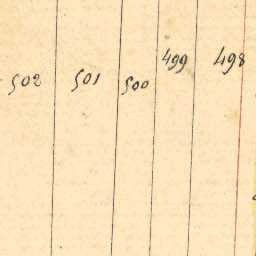 502 501 500 499 498